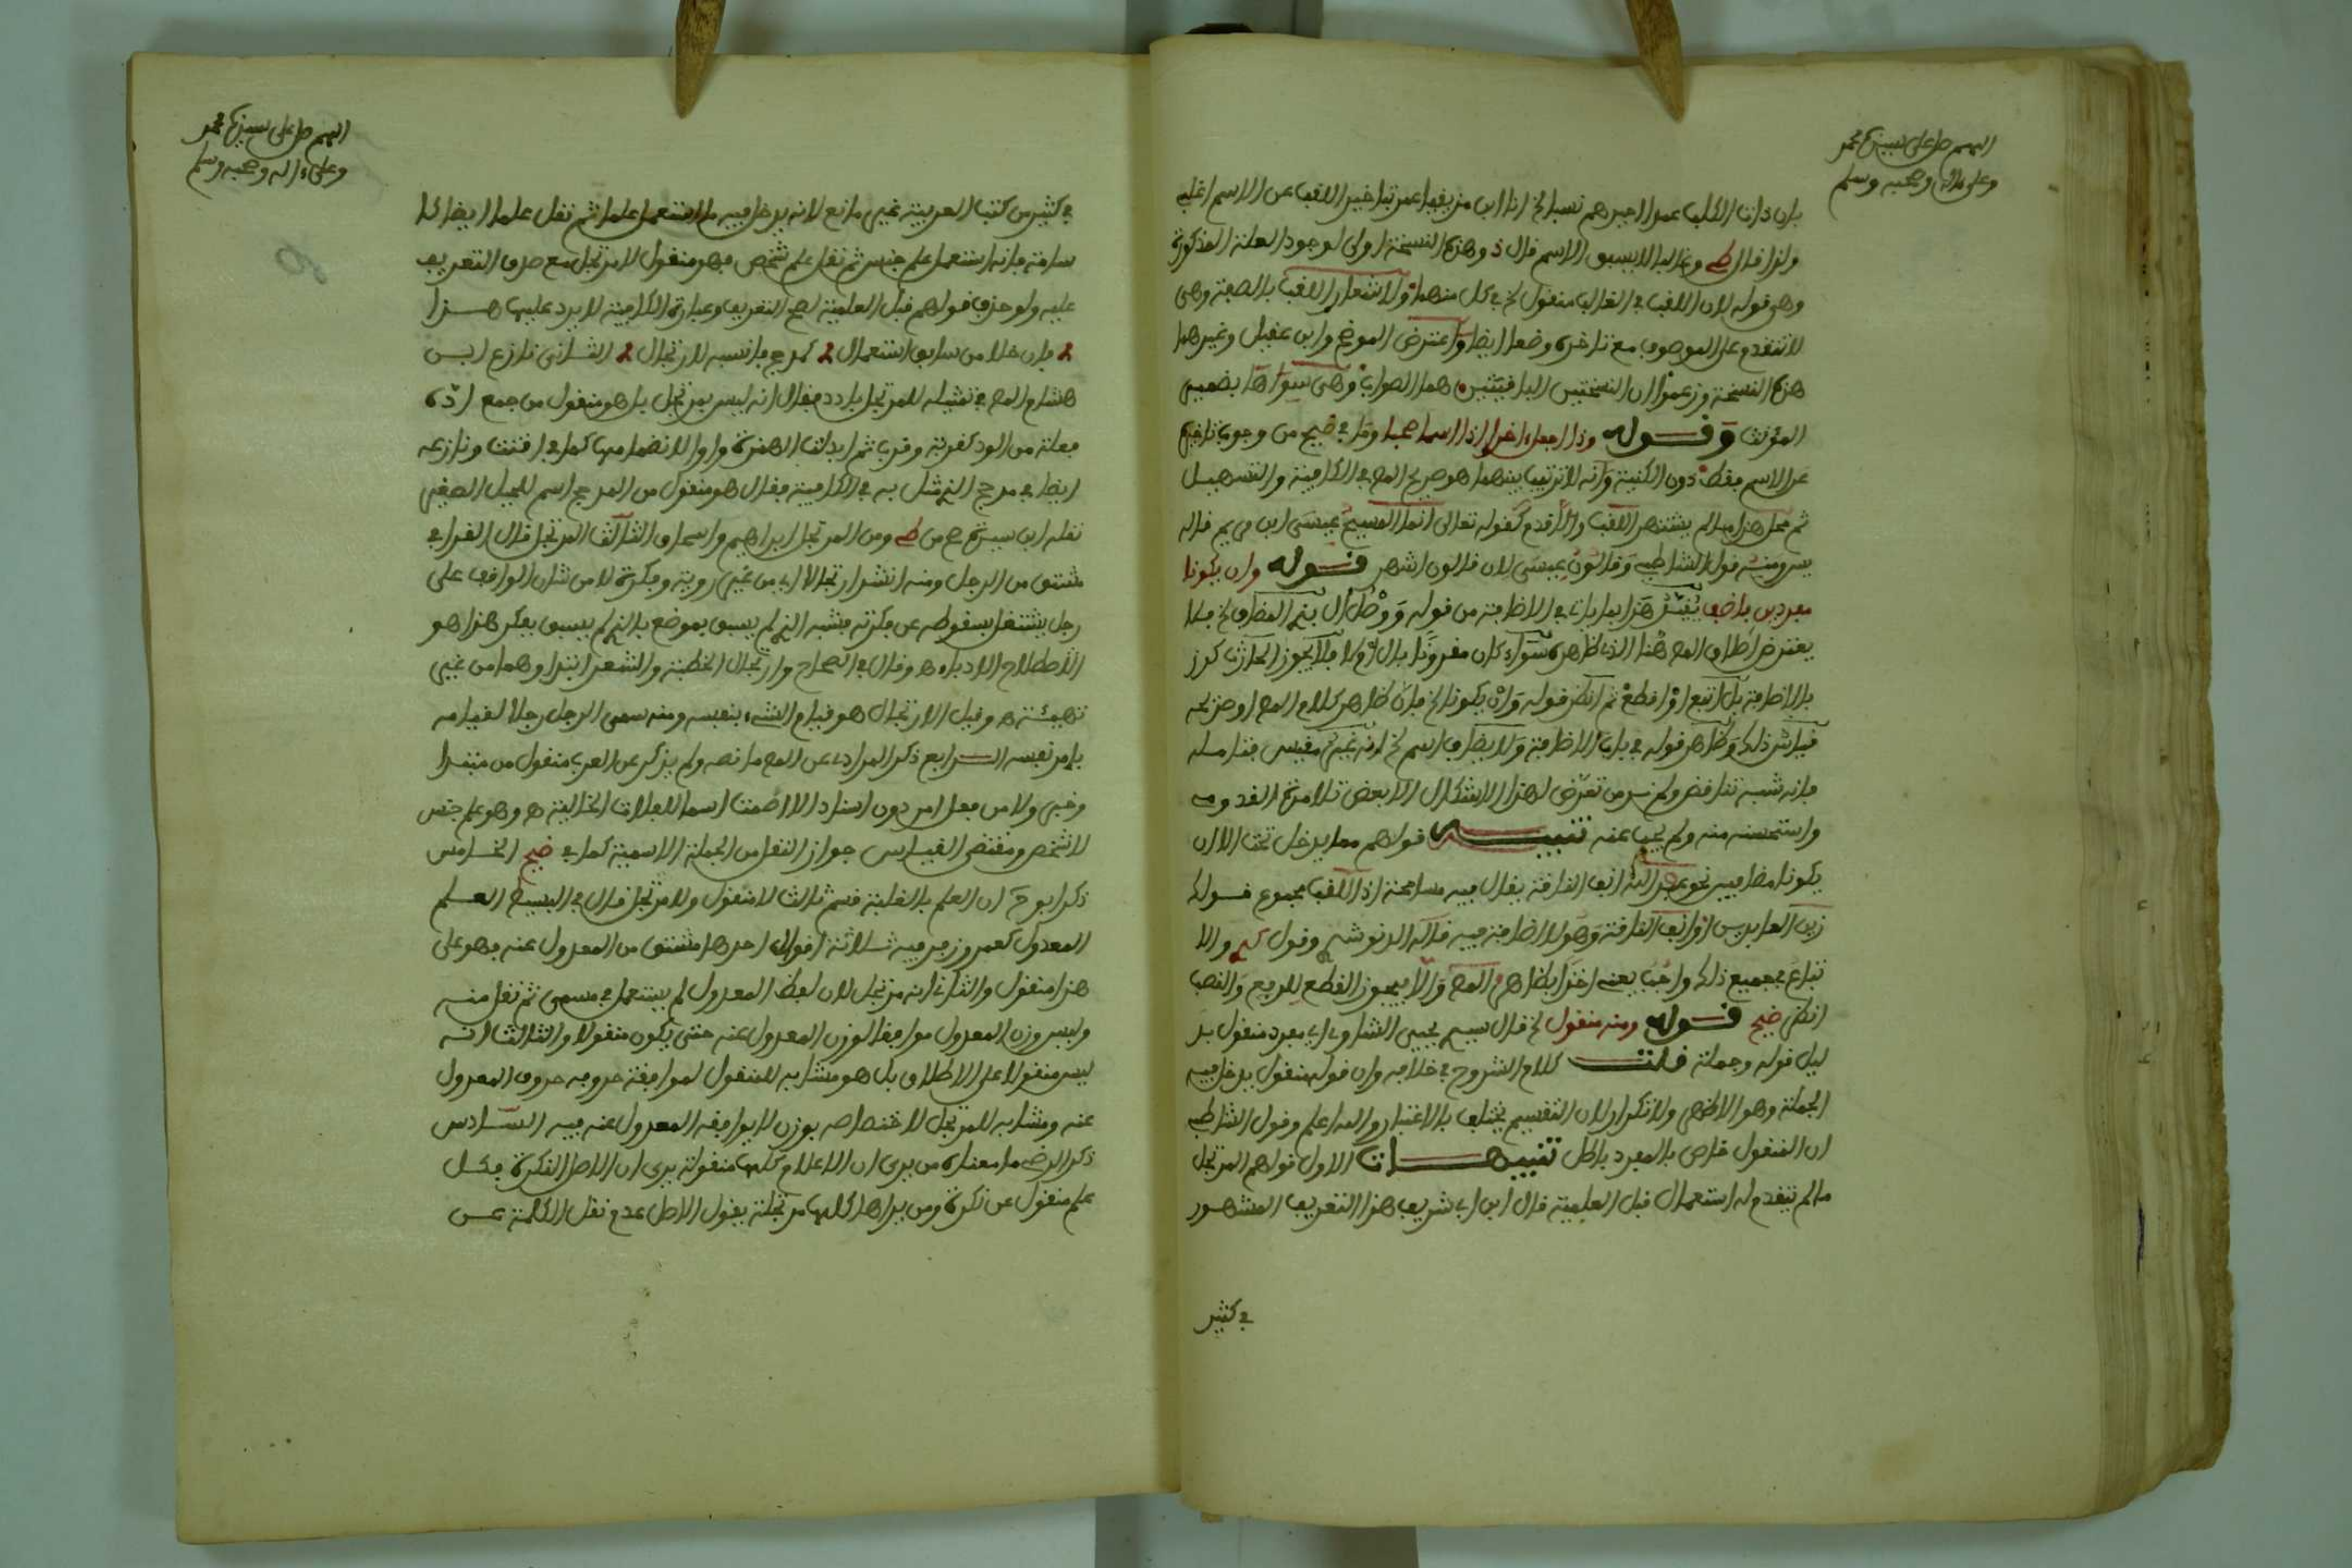 اللهم صل على سيدنا محمد
وعلى ءاله وصحبه وسلم
بان ذات الكلب عمرا خيرهم نسبا لخ انا ابن مزيقيا عمر تاخير اللقب عن الاسم اغلبى
ولذا قال ط وغالبا لا يسبق الاسم قال ذ وهذه النسخة اولى لوجود العلة المذكورة
وهى قوله لان اللقب فى الغالب منقول لخ فى كل منهما ولاشعار اللقب بالصفة وهى
لا تتقدم على الموصوف مع تاخره وضعا ايضا واعترض الموضح وابن عقيل وغيرهما
هذه النسخة وزعموا ان النسختين الباقيتين هما الصواب وهى سواها بضمير
المؤنث وقوله وذا اجعل اخرا اذا اسما صحبا وما فى ضيح من وجوب تاخيره
عن الاسم فقط دون الكنية وانه لا ترتيب بينهما هو صريح المص فى الكافية والتسهيل
ثم محل هذا ما لم يشتهر اللقب والا قدم كقوله تعالى انما المسيح عيسى ابن مريم قاله
يس ومنه قول الشاطبى وقالون عيسى لان قالون اشهر قوله وان يكونا
مفردين فاضف يفسر هذا بما ياتى فى الاضافة من قوله ووصل ال بذى المضاف لخ فلا
يعترض اطلاق المص هنا الذى ظاهره سواء كان مقرونا بال او لا فلا يجوز الحارث كرز
بالاضافة بل اتبع او اقطع ثم انظر قوله وان يكونا لخ فان ظاهر كلام المص او صريحه
قياس ذلك وظاهر قوله فى باب الاضافة ولا يضاف اسم لخ انه غير مقيس فتامله
فانه شبه تناقض ولم نر من تعرض لهذا الاشكال الا بعض تلامذة القدومى
واستحسنه منه ولم يجب عنه تنبيه قولهم مما يدخل تحت الا ان
يكونا مضافين نحو عبد الله انف الناقة يقال فيه مسامحة اذ اللقب مجموع قولك
زين العابدين او انف الناقة وهو لا اضافة فيه قاله الدنوشرى وقول كم والا
تباع فى جميع ذلك واجب يعنى اخذا بظاهر المص والا فيجوز القطع للرفع والنصب
انظر ضيح قوله ومنه منقول لخ قال سيد يحيى الشاوى اى مفرد منقول بد
ليل قوله وجملة قلت كلام الشروح فى خلافه وان قوله منقول يدخل فيه
الجملة وهو الاظهر ولا تكرار لان التقسيم يختلف بالاعتبار والله اعلم وقول الشاطبى
ان المنقول خاص بالمفرد باطل تنبيهات الاول قولهم المرتجل
ما لم يتقدم له استعمال قبل العلمية قال ابن ابى شريف هذا التعريف المشهور
فى كثير
اللهم صل على سيدنا محمد
وعلى ءاله وصحبه وسلم
فى كثير من كتب العربية غير مانع لانه يدخل فيه ما استعمل علما ثم نقل علما ايضا كا
سامة فانه استعمل علم جنس ثم نقل علم شخص فهو منقول لا مرتجل مع صدق التعريف
عليه ولو حذف قولهم قبل العلمية لصح التعريف وعبارة الكافية لا يرد عليها هذا
فان خلا من سابق استعمال كمدحج فانسبه لارتجال الثانى نازع ابن
هشام المص فى تمثيله للمرتجل بادد فقال انه ليس بمرتجل بل هو منقول من جمع ادة
فعلة من الود كقربة وقرب ثم ابدلت الهمزة واوا لانضمامها كما فى اقتت ونازعه
ايضا فى مدحج الذى مثل به فى الكافية فقال هو منقول من المدحج اسم للجبل الصغير
نقله ابن سيده ضح من ط ومن المرتجل ابراهيم واسحاق الثالث المرتجل قال القرافى
مشتق من الرجل ومنه انشد ارتجالا اى من غير روية وفكرة لا من شان الواقف على
رجل يشتغل بسقوطه عن فكرته فشبه الذى لم يسبق بوضع بالذى لم يسبق بفكر هذا هو
الاصطلاح للادباء ه وقال فى الصحاح وارتجال الخطبة والشعر ابتداوهما من غير
تهيئة ه وقيل الارتجال هو قيام الشىء بنفسه ومنه سمى الرجل رجلا لقيامه
بامر نفسه الرابع ذكر المرادى عن المص ما نصه ولم يذكر عن العرب منقول من مبتدا
وخبر ولا من فعل امر دون اسناد الا اصمت اسما للفلات الخالية ه وهو علم جنس
لا شخص ومقتضى القياس جواز النقل من الجملة الاسمية كما فى ضيح الخامس
ذكر ابو ح ان العلم بالغلبة قسم ثالث لا منقول ولا مرتجل قال فى البسيط العلم
المعدول كعمر وزفر فيه ثلاثة اقوال احدها مشتق من المعدول عنه فهو على
هذا منقول والثانى انه مرتجل لان لفظ المعدول لم يستعمل فى مسمى ثم نقل منه
وليس وزن المعدول موافقا لوزن المعدول عنه حتى يكون منقولا والثالث انه
ليس منقولا على الاطلاق بل هو مشابه للمنقول لموافقة حروفه حروف المعدول
عنه ومشابه للمرتجل لاختصاصه بوزن لا يوافقه المعدول عنه فيه السادس
ذكر الرضى ما معناه من يرى ان الاعلام كلها منقولة يرى ان الاصل النكرة فكل
علم منقول عن نكرة ومن يراها كلها مرتجلة يقول الاصل عدم نقل الكلمة عن